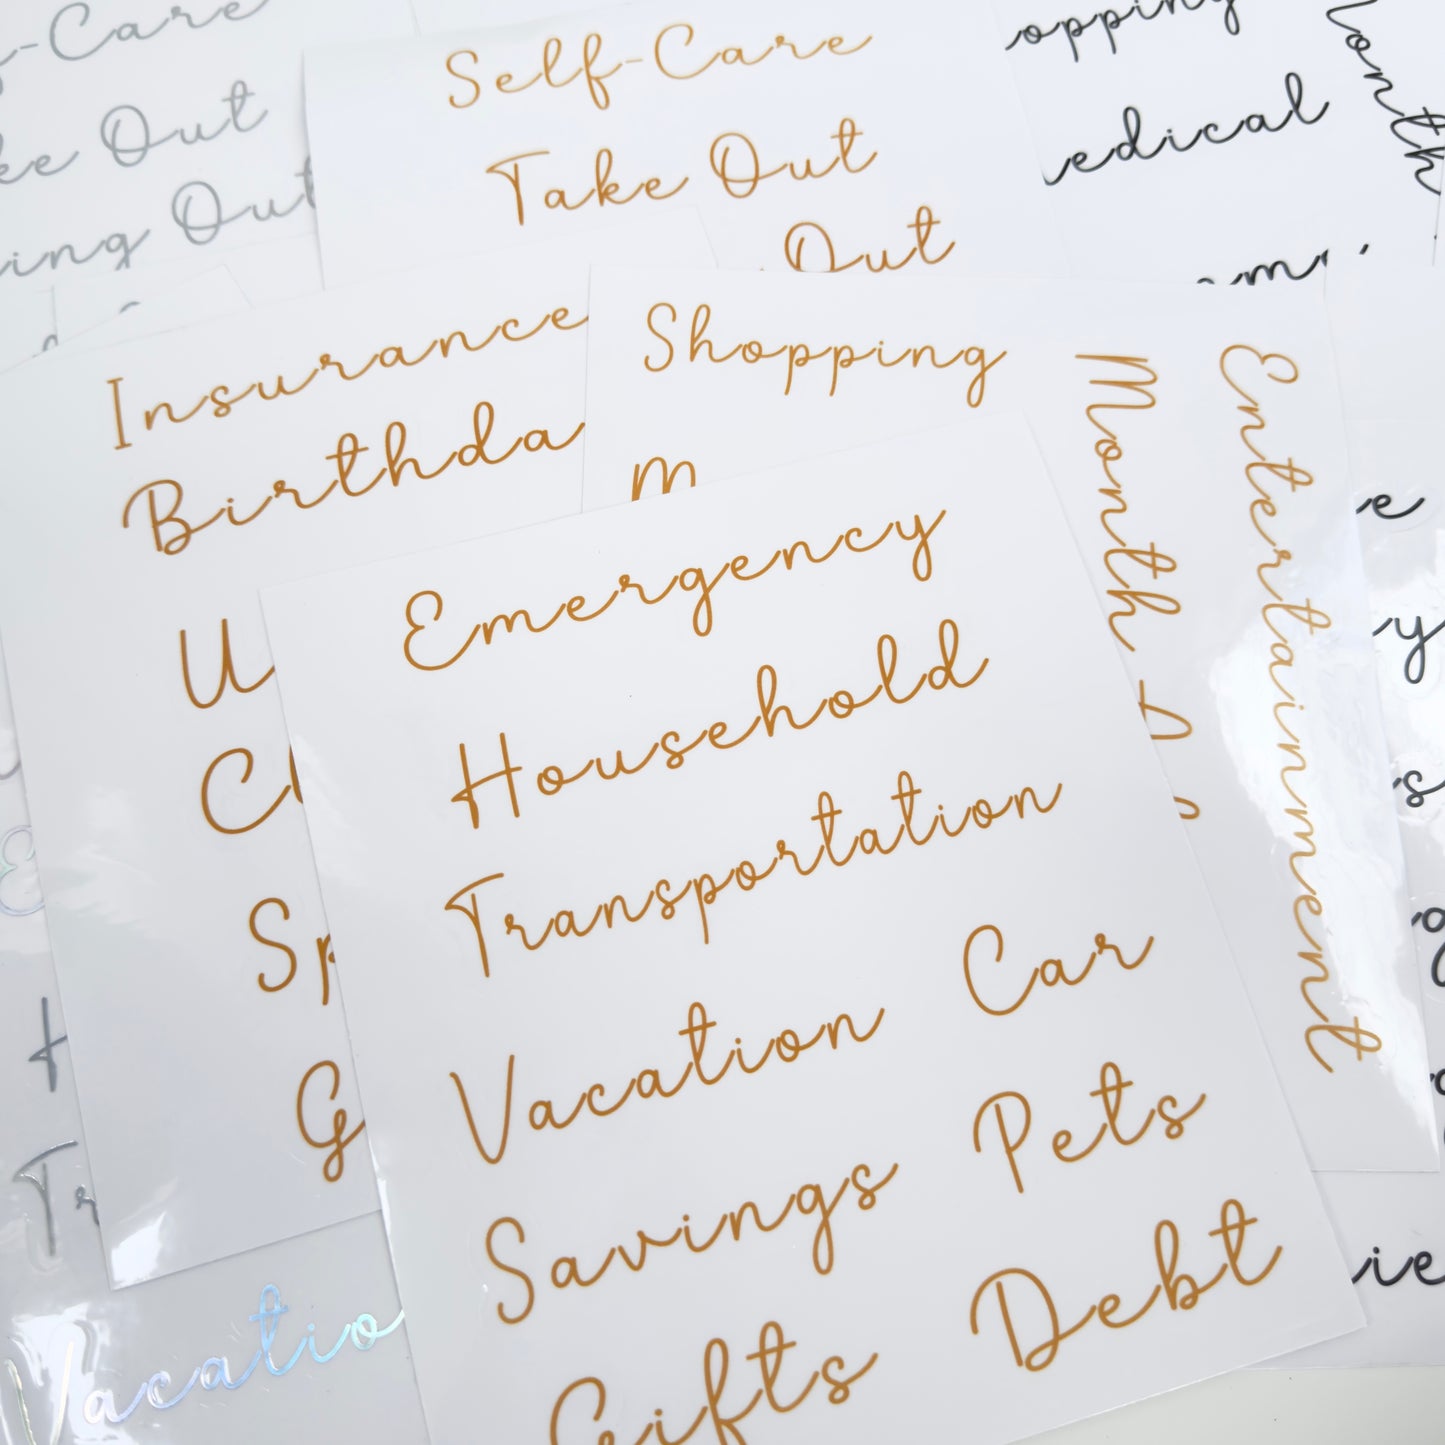 Self-Care
Take Out
Out
-Care
Out
ing Out
opping
edical
Month
Insurance
Birthda
U
C
Sp
G
Shopping
M
Month
Entertainment
Emergency
Household
Transportation
Vacation Car
Savings Pets
Gifts Debt
e
y
s
ie
E
H
Tr
Vacatio